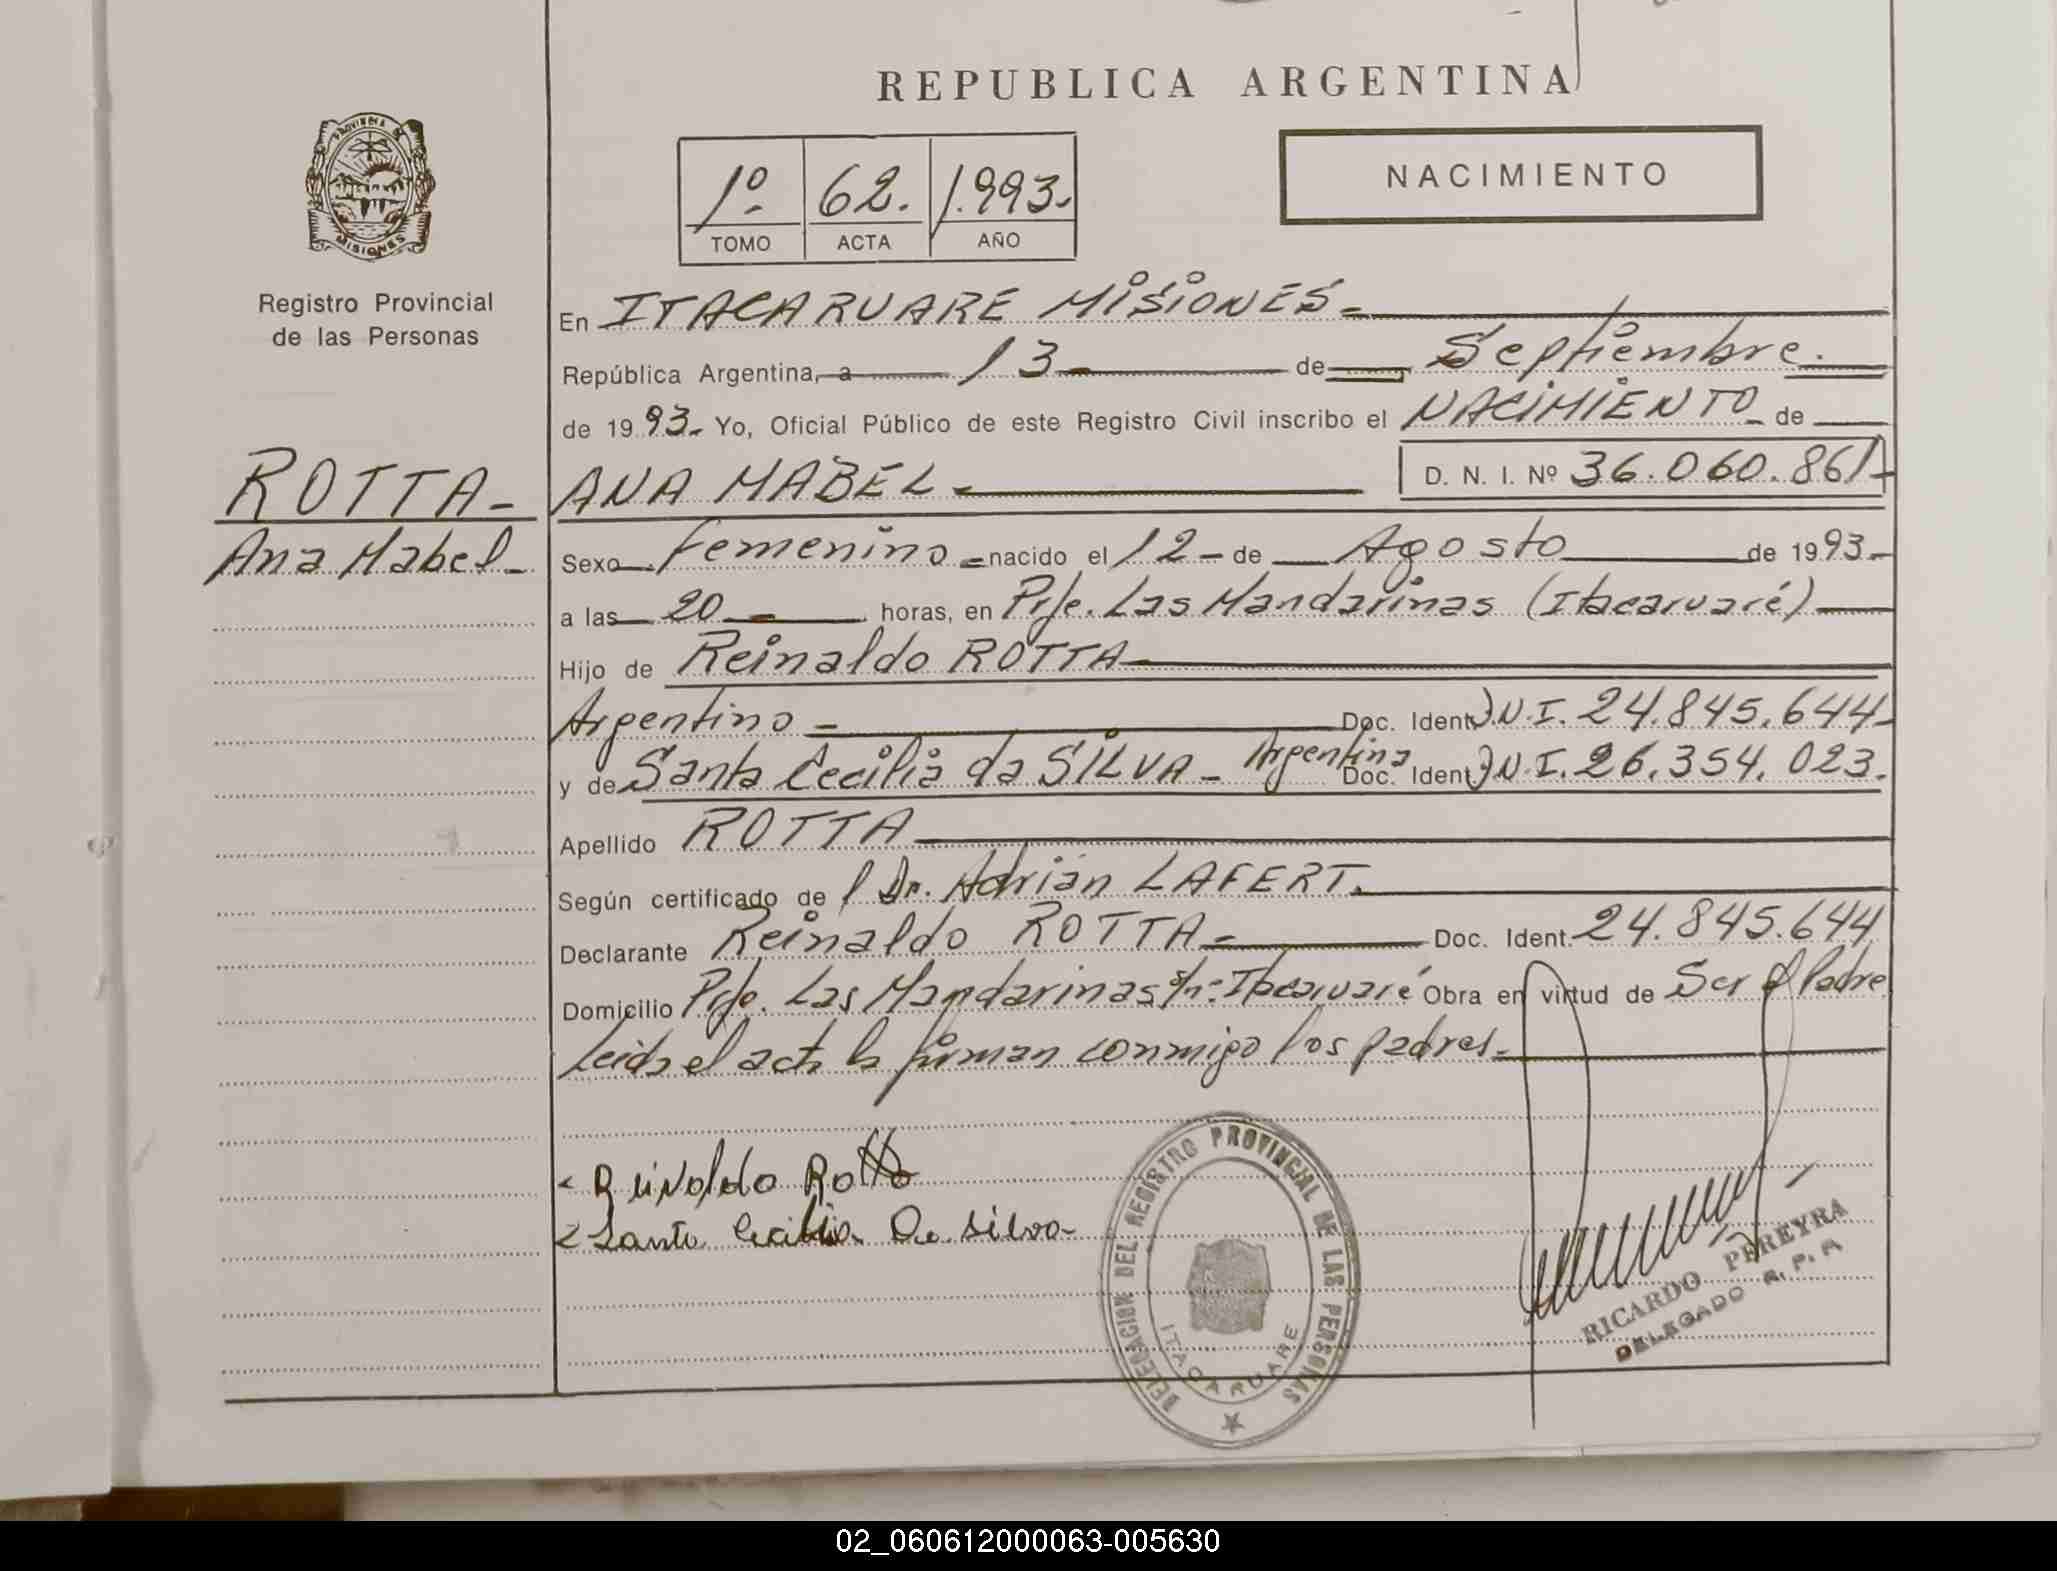 REPUBLICA ARGENTINA
PROVINCIA DE
MISIONES
Registro Provincial
de las Personas
1º 62. 1.993.-
TOMO ACTA AÑO
NACIMIENTO
En ITACARUARE MISIONES.-
República Argentina, a 13- de Septiembre.
de 1993.- Yo, Oficial Público de este Registro Civil inscribo el NACIMIENTO- de
ROTTA-
Ana Mabel-
ANA MABEL.- D. N. I. Nº 36.060.861-
Sexo Femenino - nacido el 12- de Agosto de 1993.-
a las 20- horas, en Pje. Las Mandarinas (Itacaruaré)
Hijo de Reinaldo ROTTA-
Argentino- Doc. Ident. D.N.I. 24.845.644-
y de Santa Cecilia da SILVA- Argentina Doc. Ident. D.N.I. 26.354.023.
Apellido ROTTA
Según certificado de / Dr. Adrián LAFERT.
Declarante Reinaldo ROTTA- Doc. Ident. 24.845.644
Domicilio Pje. Las Mandarinas s/n:- Itacaruaré Obra en virtud de Ser el Padre
Leida el acta la firman conmigo los padres.-
Reinaldo Rotta
Santa Cecilia Da Silva-
DELEGACION DEL REGISTRO PROVINCIAL DE LAS PERSONAS
ITACARUARE
RICARDO PEREYRA
DELEGADO R. P. P.
02_060612000063-005630